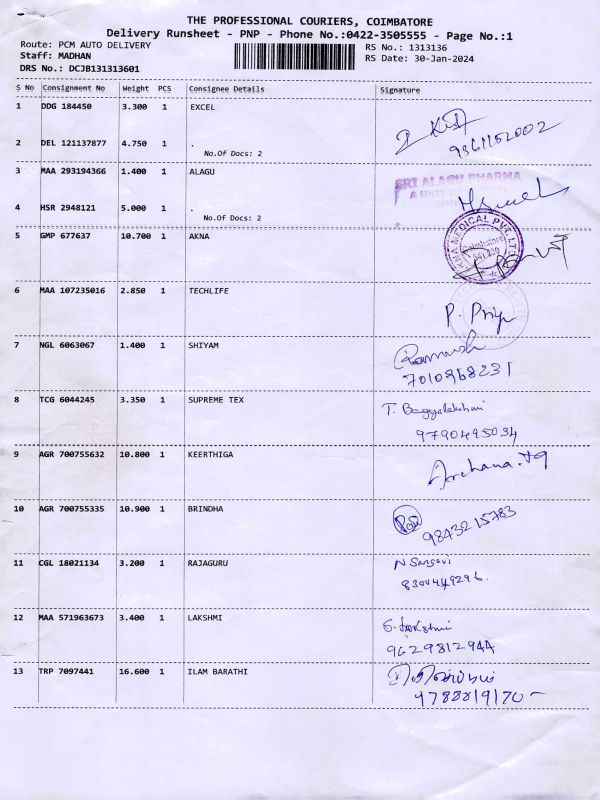 THE PROFESSIONAL COURIERS, COIMBATORE
Delivery Runsheet - PNP - Phone No.:0422-3505555 - Page No.:1
Route: PCM AUTO DELIVERY
RS No.: 1313136
Staff: MADHAN
RS Date: 30-Jan-2024
DRS No.: DCJB131313601
S No Consignment No Weight PCS Consignee Details Signature
1 DDG 184450 3.300 1 EXCEL
9361152002
2 DEL 121137877 4.750 1 .
No.Of Docs: 2
3 MAA 293194366 1.400 1 ALAGU
SRI ALAGU PHARMA
A UNIT
4 HSR 2948121 5.000 1 .
No.Of Docs: 2
5 GMP 677637 10.700 1 AKNA
AKNA MEDICAL PVT. LTD
Coimbatore
6 MAA 107235016 2.850 1 TECHLIFE
P. Priya
7 NGL 6063067 1.400 1 SHIYAM
7010968231
8 TCG 6044245 3.350 1 SUPREME TEX
T. Bagyalakshmi
9790495034
9 AGR 700755632 10.800 1 KEERTHIGA
Archana
10 AGR 700755335 10.900 1 BRINDHA
9843215783
11 CGL 18021134 3.200 1 RAJAGURU
8300449296.
12 MAA 571963673 3.400 1 LAKSHMI
9629812944
13 TRP 7097441 16.600 1 ILAM BARATHI
9788819170